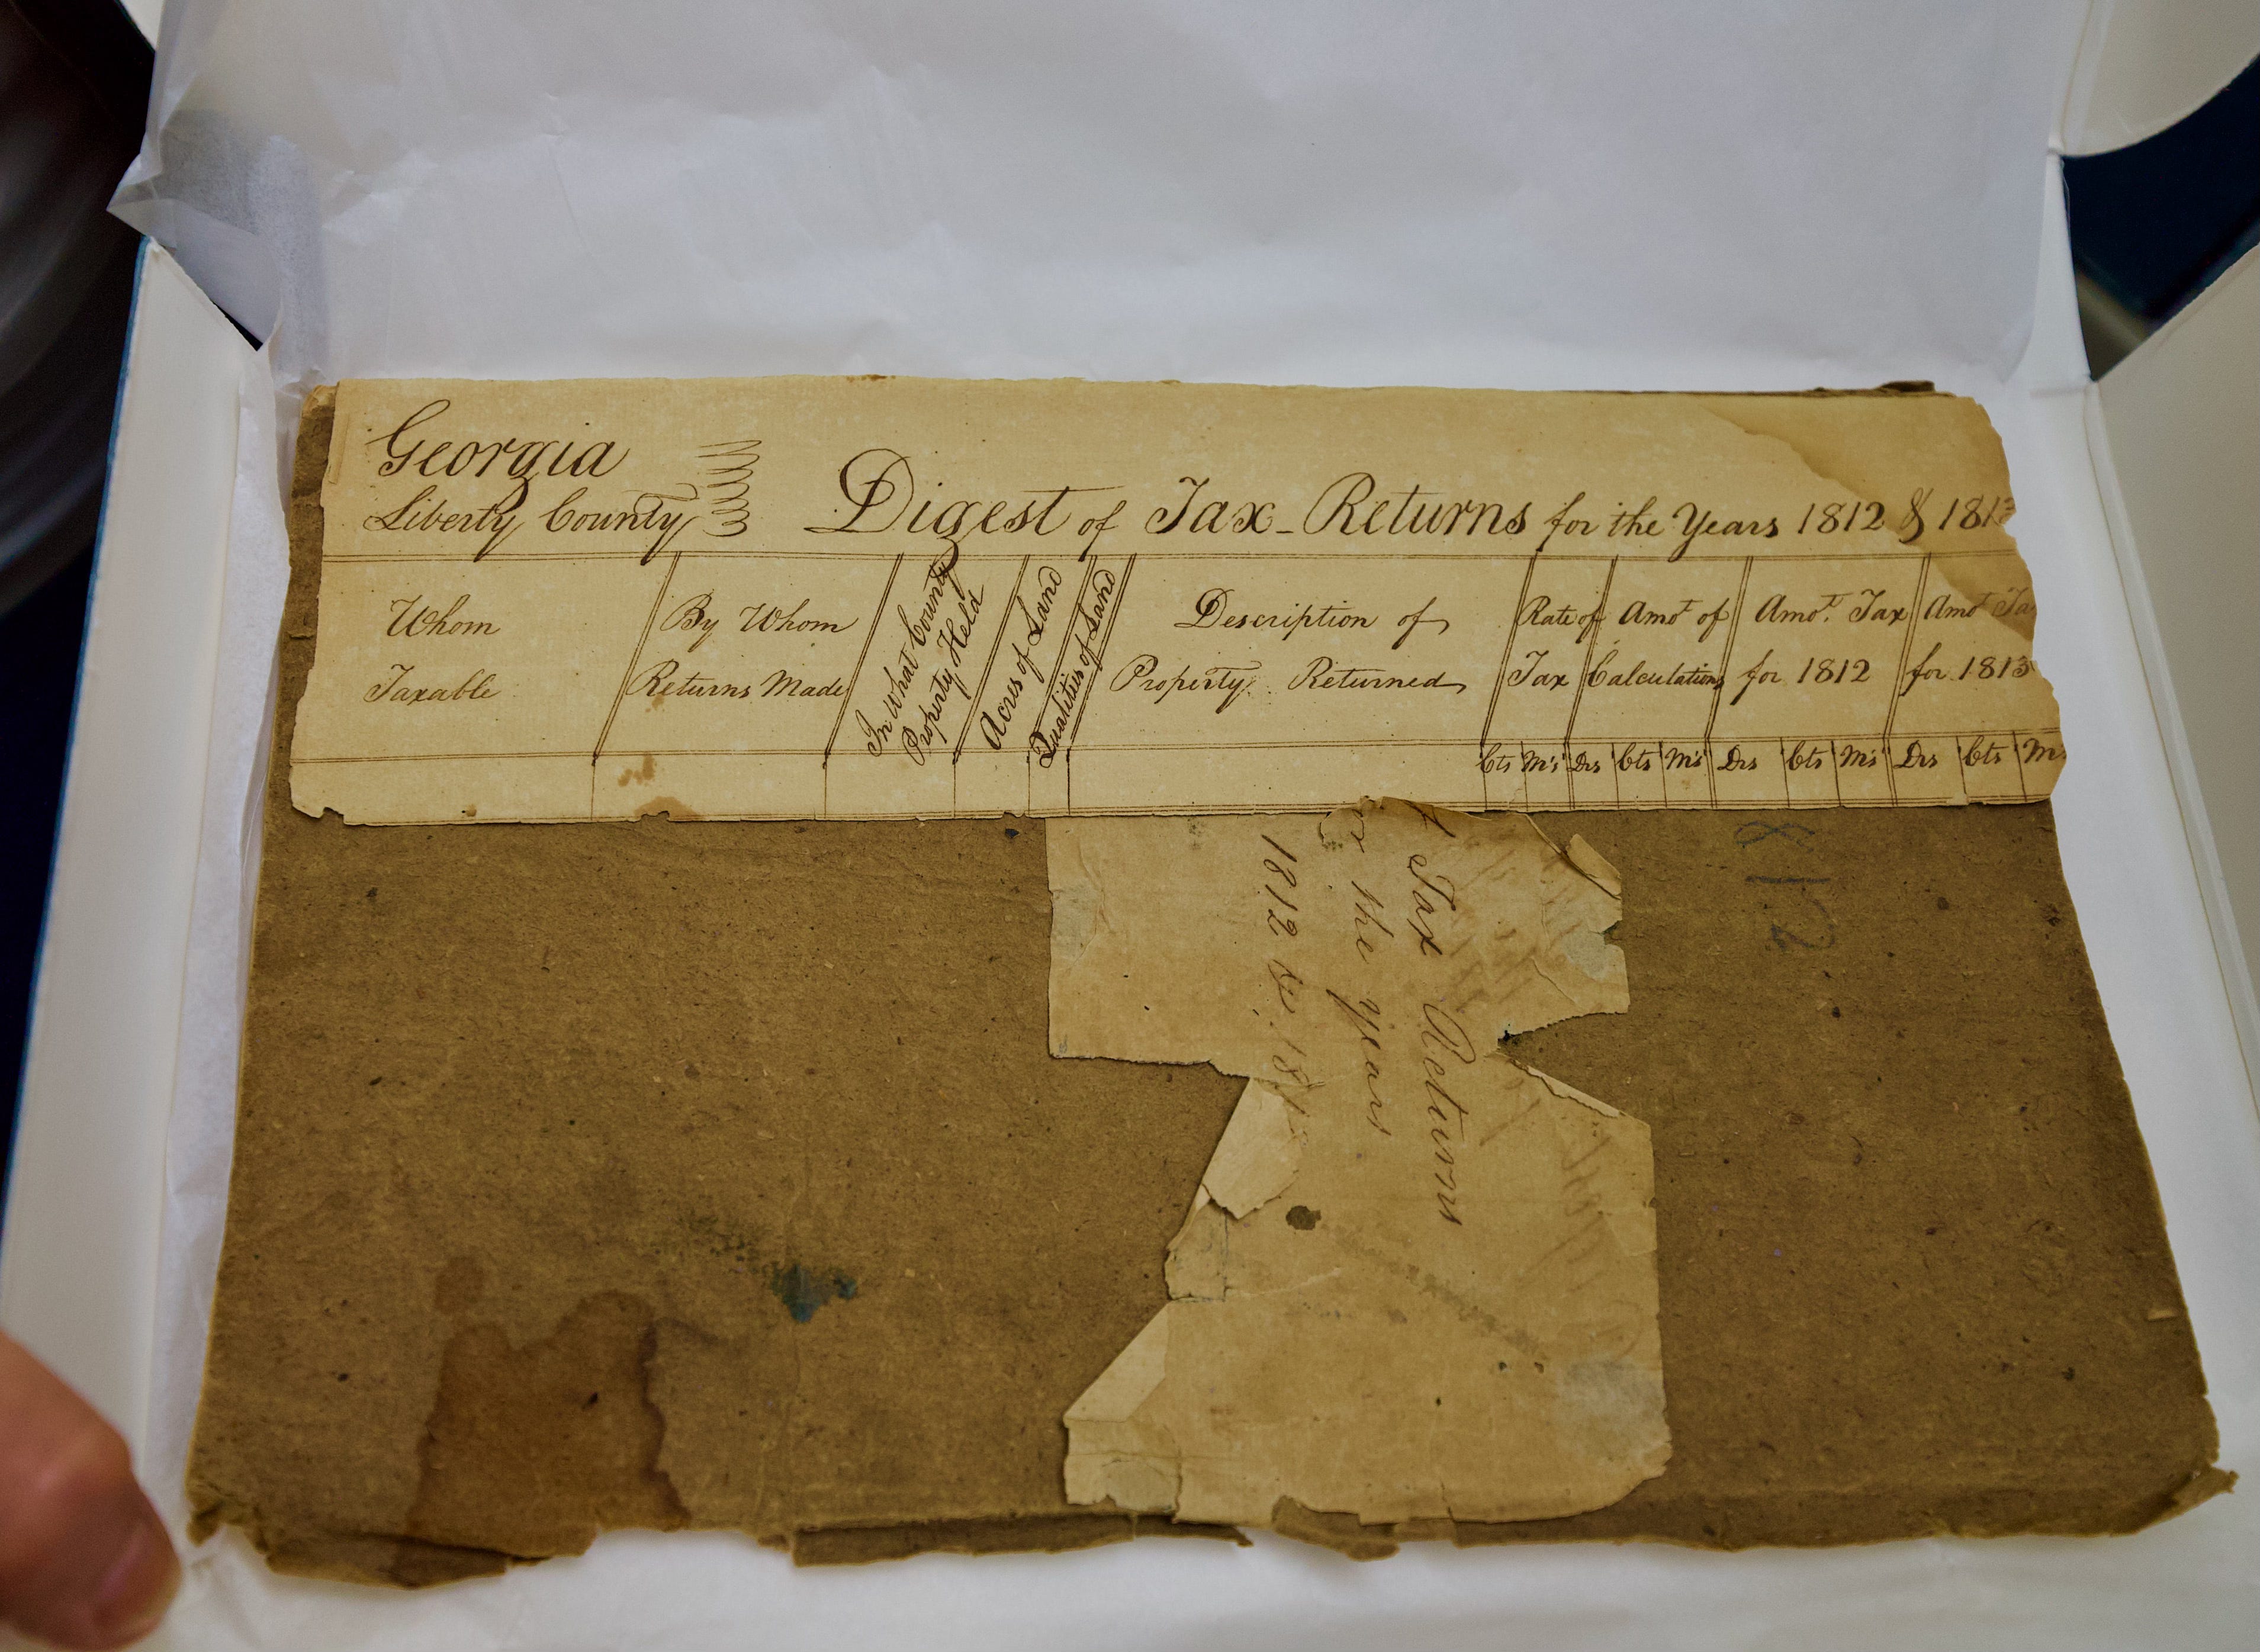 Georgia
Liberty County
Digest of Tax-Returns for the Years 1812 & 1813
Whom
Taxable
By Whom
Returns Made
In What County
Property Held
Acres of Land
Qualities of Land
Description of
Property Returned
Rate of
Tax
Amot of
Calculations
Amot. Tax
for 1812
Amot Ta
for 1813
Cts Ms Drs Cts Ms Drs Cts Ms Drs Cts M
Tax Returns
the years
1812 &
1812